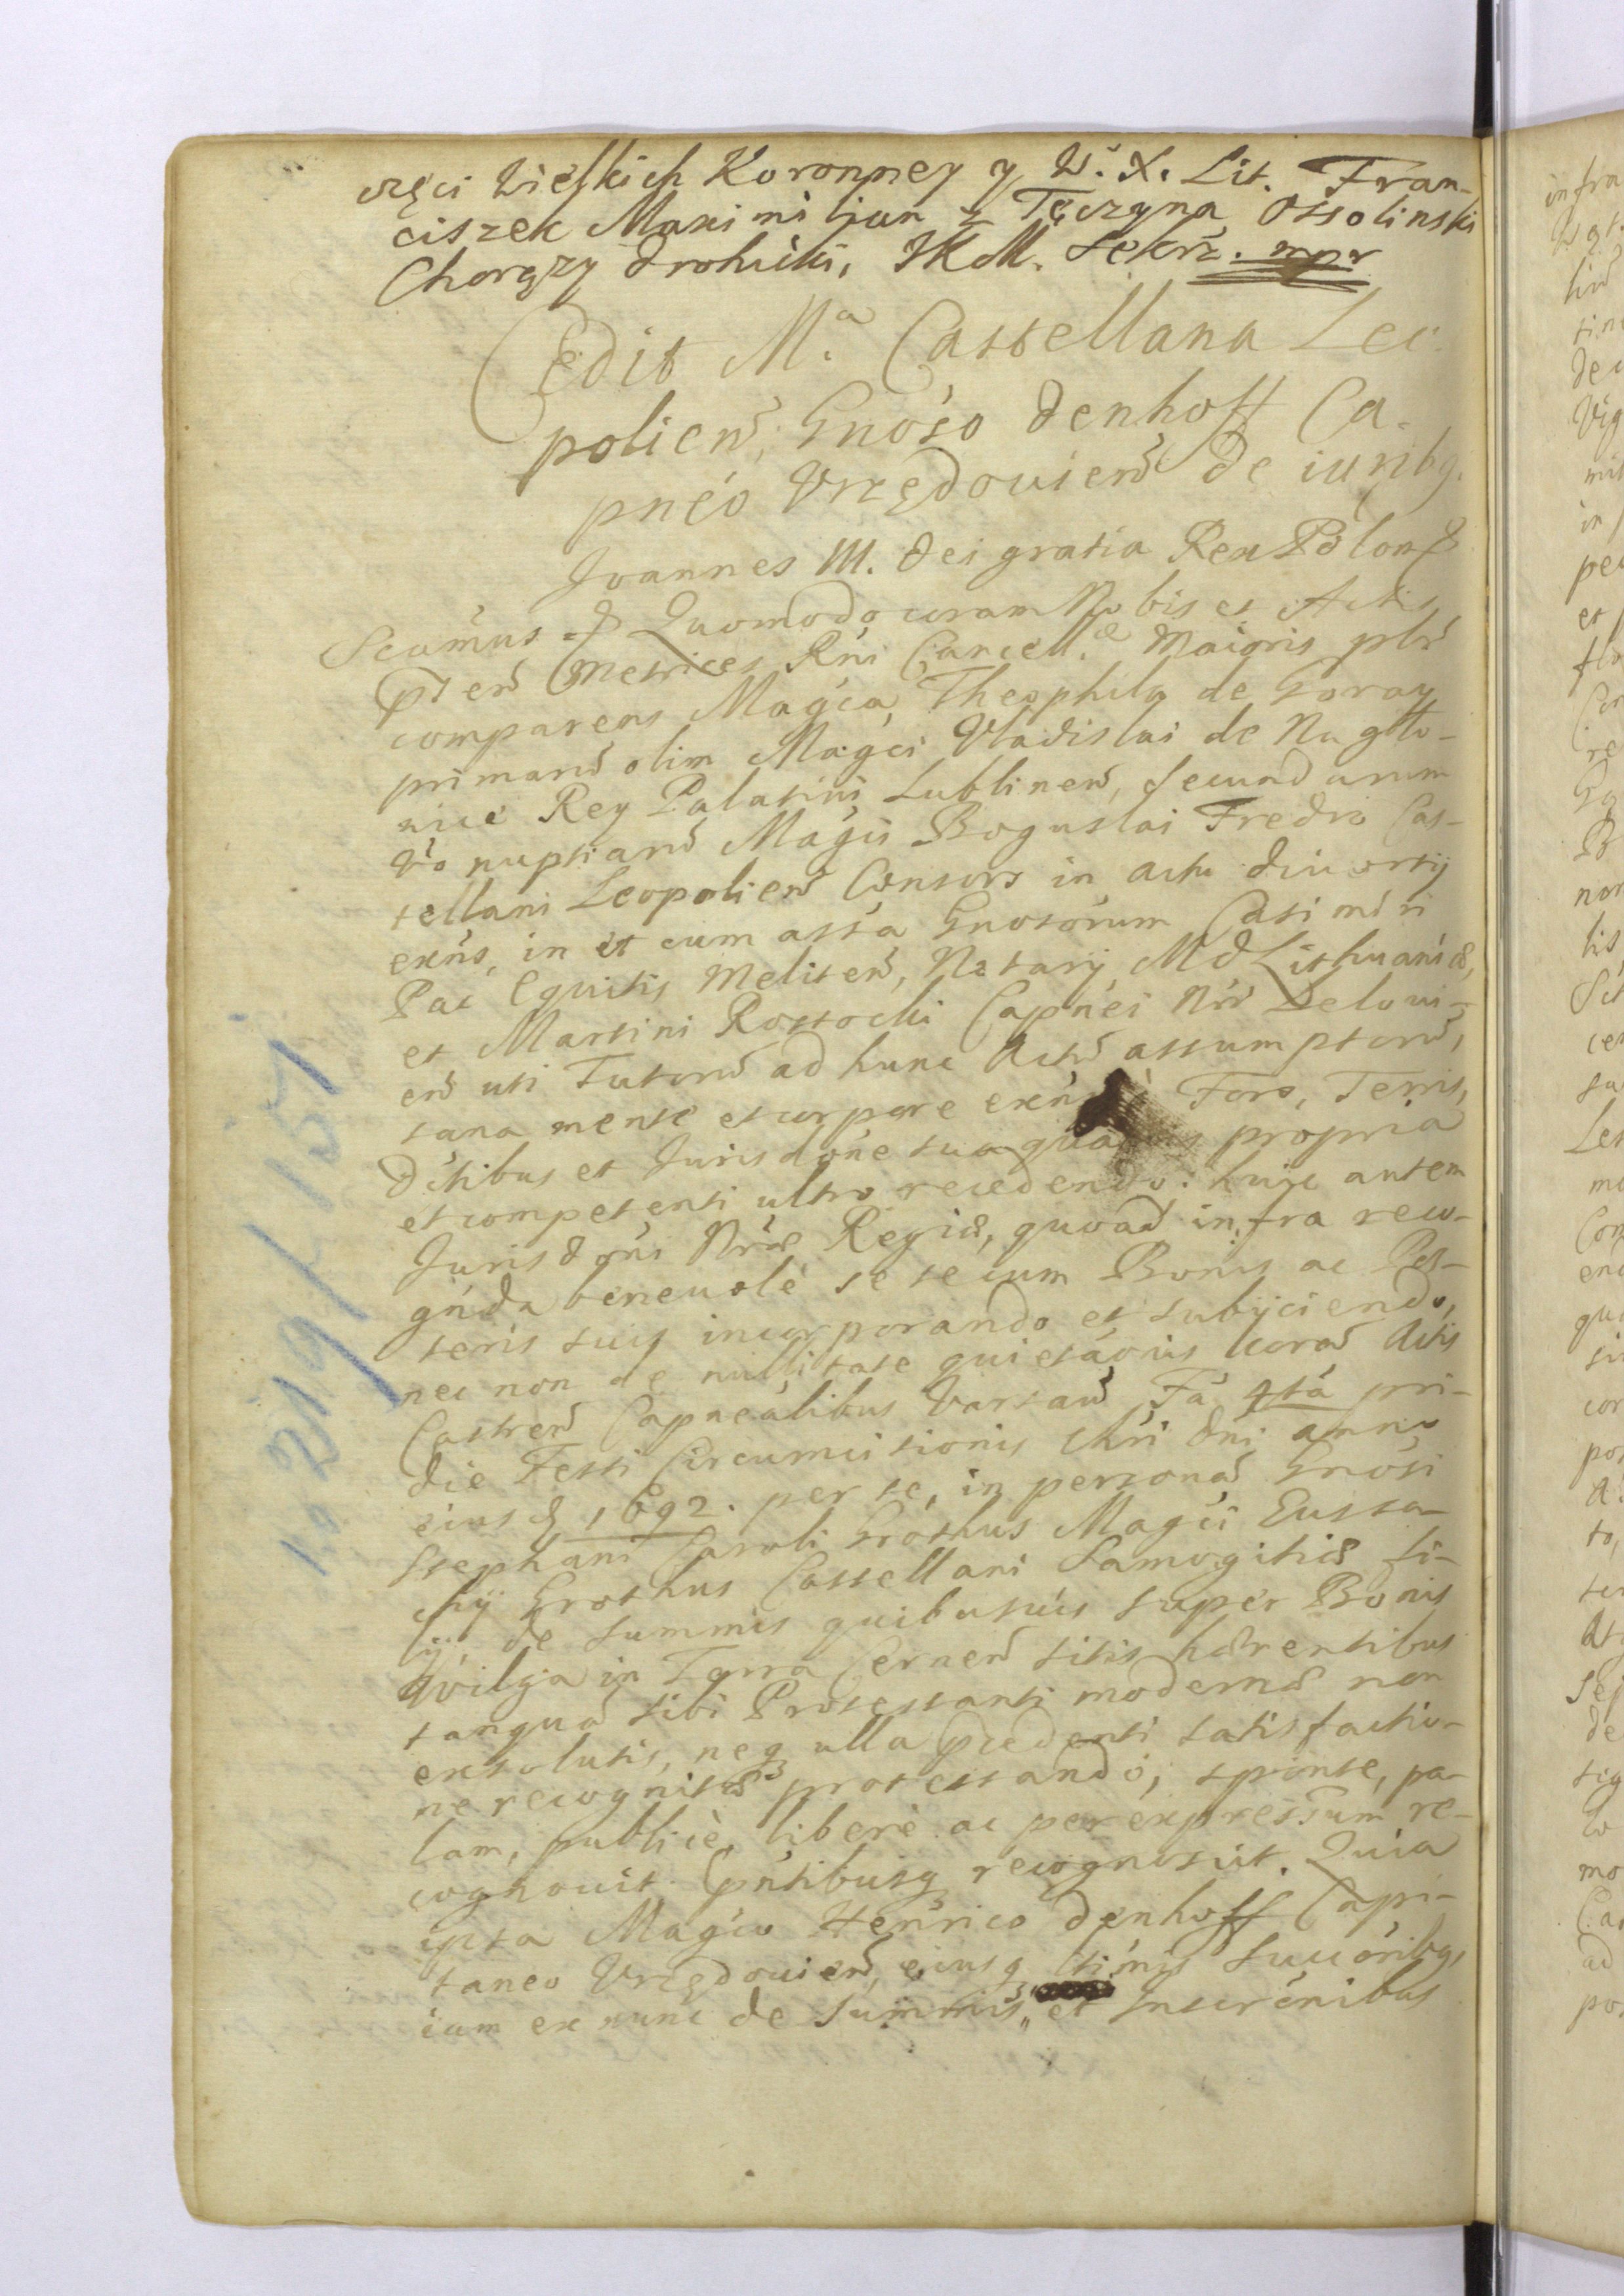 częci Wielkich Koronney y W. X. Lit. Fran-
ciszek Maximilian z Tęczyna Ossolinski
Chorązy drohicki, JKM. Sekrz. mpr
Cedit M.a Castellana Leo-
polień, Gnoso denhoff Ca-
pneo Vrzędovień de iuribq.
Joannes III. Dei gratia Rex Polon &
Scamus & Quomodo coram Nobis et Actis
pnteń Metrices Rni Cancell.æ Maioris plr
comparens Magca Theophila de Goray
primarū olim Magci Vladislai de Nagło-
wice Rey Palatini Lublineń, secundarum
vo nuptiarū Magci Boguslai Fredro Cas-
tellani Leopolień Consors in actu diuortij
exns, in et cum assa Gnosorum Casimiri
Pac Equitis Meliteń, Notarij M D Lithuaniæ,
et Martini Rostocki Capnei Nri Zelovi-
eń uti Tutorū ad hunc Actū assumptorū,
sana mente et corpore exns, Foro, Terris,
dctibus et Jurisdone sua propria
et competenti ultro recedendo: huic autem
Jurisdoni Nræ Regiæ, quoad infra reco-
gnda beneuolè se se cum Bonis ac Pos-
teris suis incorporando et subijciendo,
nec non de nullitate quietaonis corā Actis
Castreń Capnealibus Varsaū Fa 4tá pri-
die Festi Circumcisionis Chri Dni anno
eiusd 1692. per se, in personā Gnosi
Stephani Caroli Grothus Magci Eusta-
chij Grothus Castellani Samogitiæ fi-
lij, de summis quibusuis super Bonis
Wilga in Terra Cerneń sitis hærentibus
tanquā sibi Protestanti modernæ non
exsolutis, neq ulla præcedenti satisfactio-
ne recognitæ protestando; sponte, pa-
lam, publicè, liberè ac per expressum re-
cognouit. Pntibusq recognoscit. Quia
ipsa Magco Henrico Denhoff Capi-
taneo Vrzędovień, eiusq ltimis Succoribq,
iam ex nunc de Summis, et Inscrēnibus
No 219/151